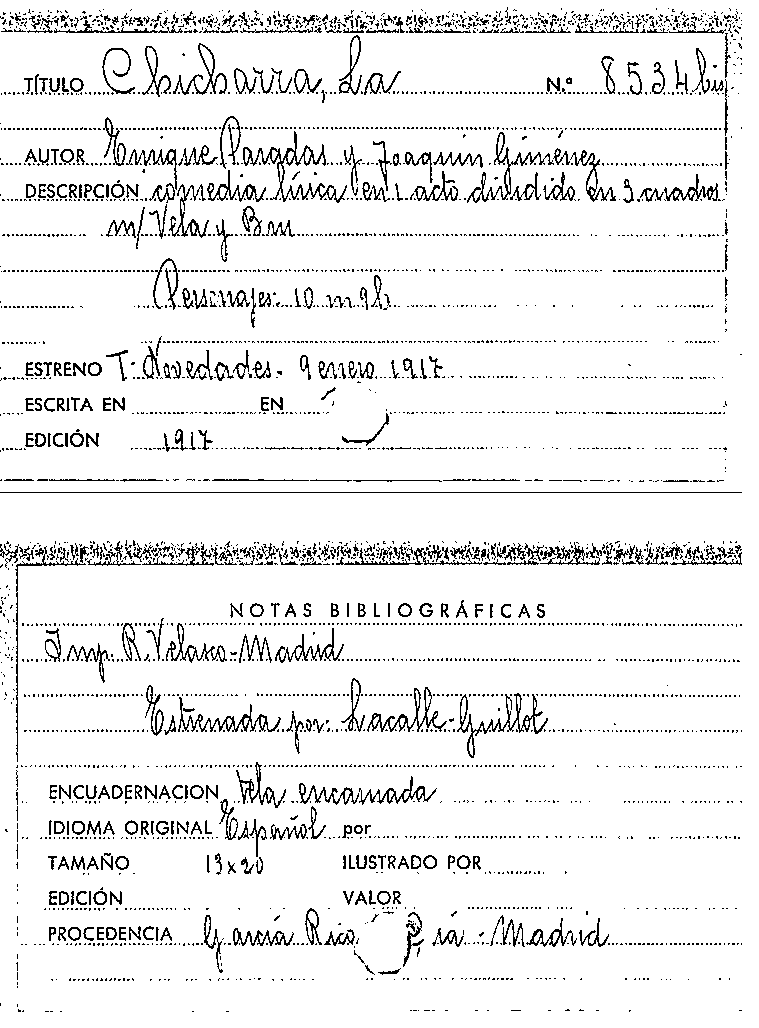 TÍTULO Chicharra, La N.º 8534 bis
AUTOR Enrique Paradas y Joaquín Giménez
DESCRIPCIÓN comedia lírica en 1 acto dividido en 3 cuadros
m/ Vela y Bru
Personajes: 10 m 9 h
ESTRENO T. Novedades. 9 enero 1917
ESCRITA EN EN
EDICIÓN 1917
NOTAS BIBLIOGRÁFICAS
Imp. R. Velasco - Madrid
Estrenada por: Lacalle - Guillot
ENCUADERNACION tela encarnada
IDIOMA ORIGINAL Español por
TAMAÑO 13x20 ILUSTRADO POR
EDICIÓN VALOR
PROCEDENCIA García Rico - Madrid